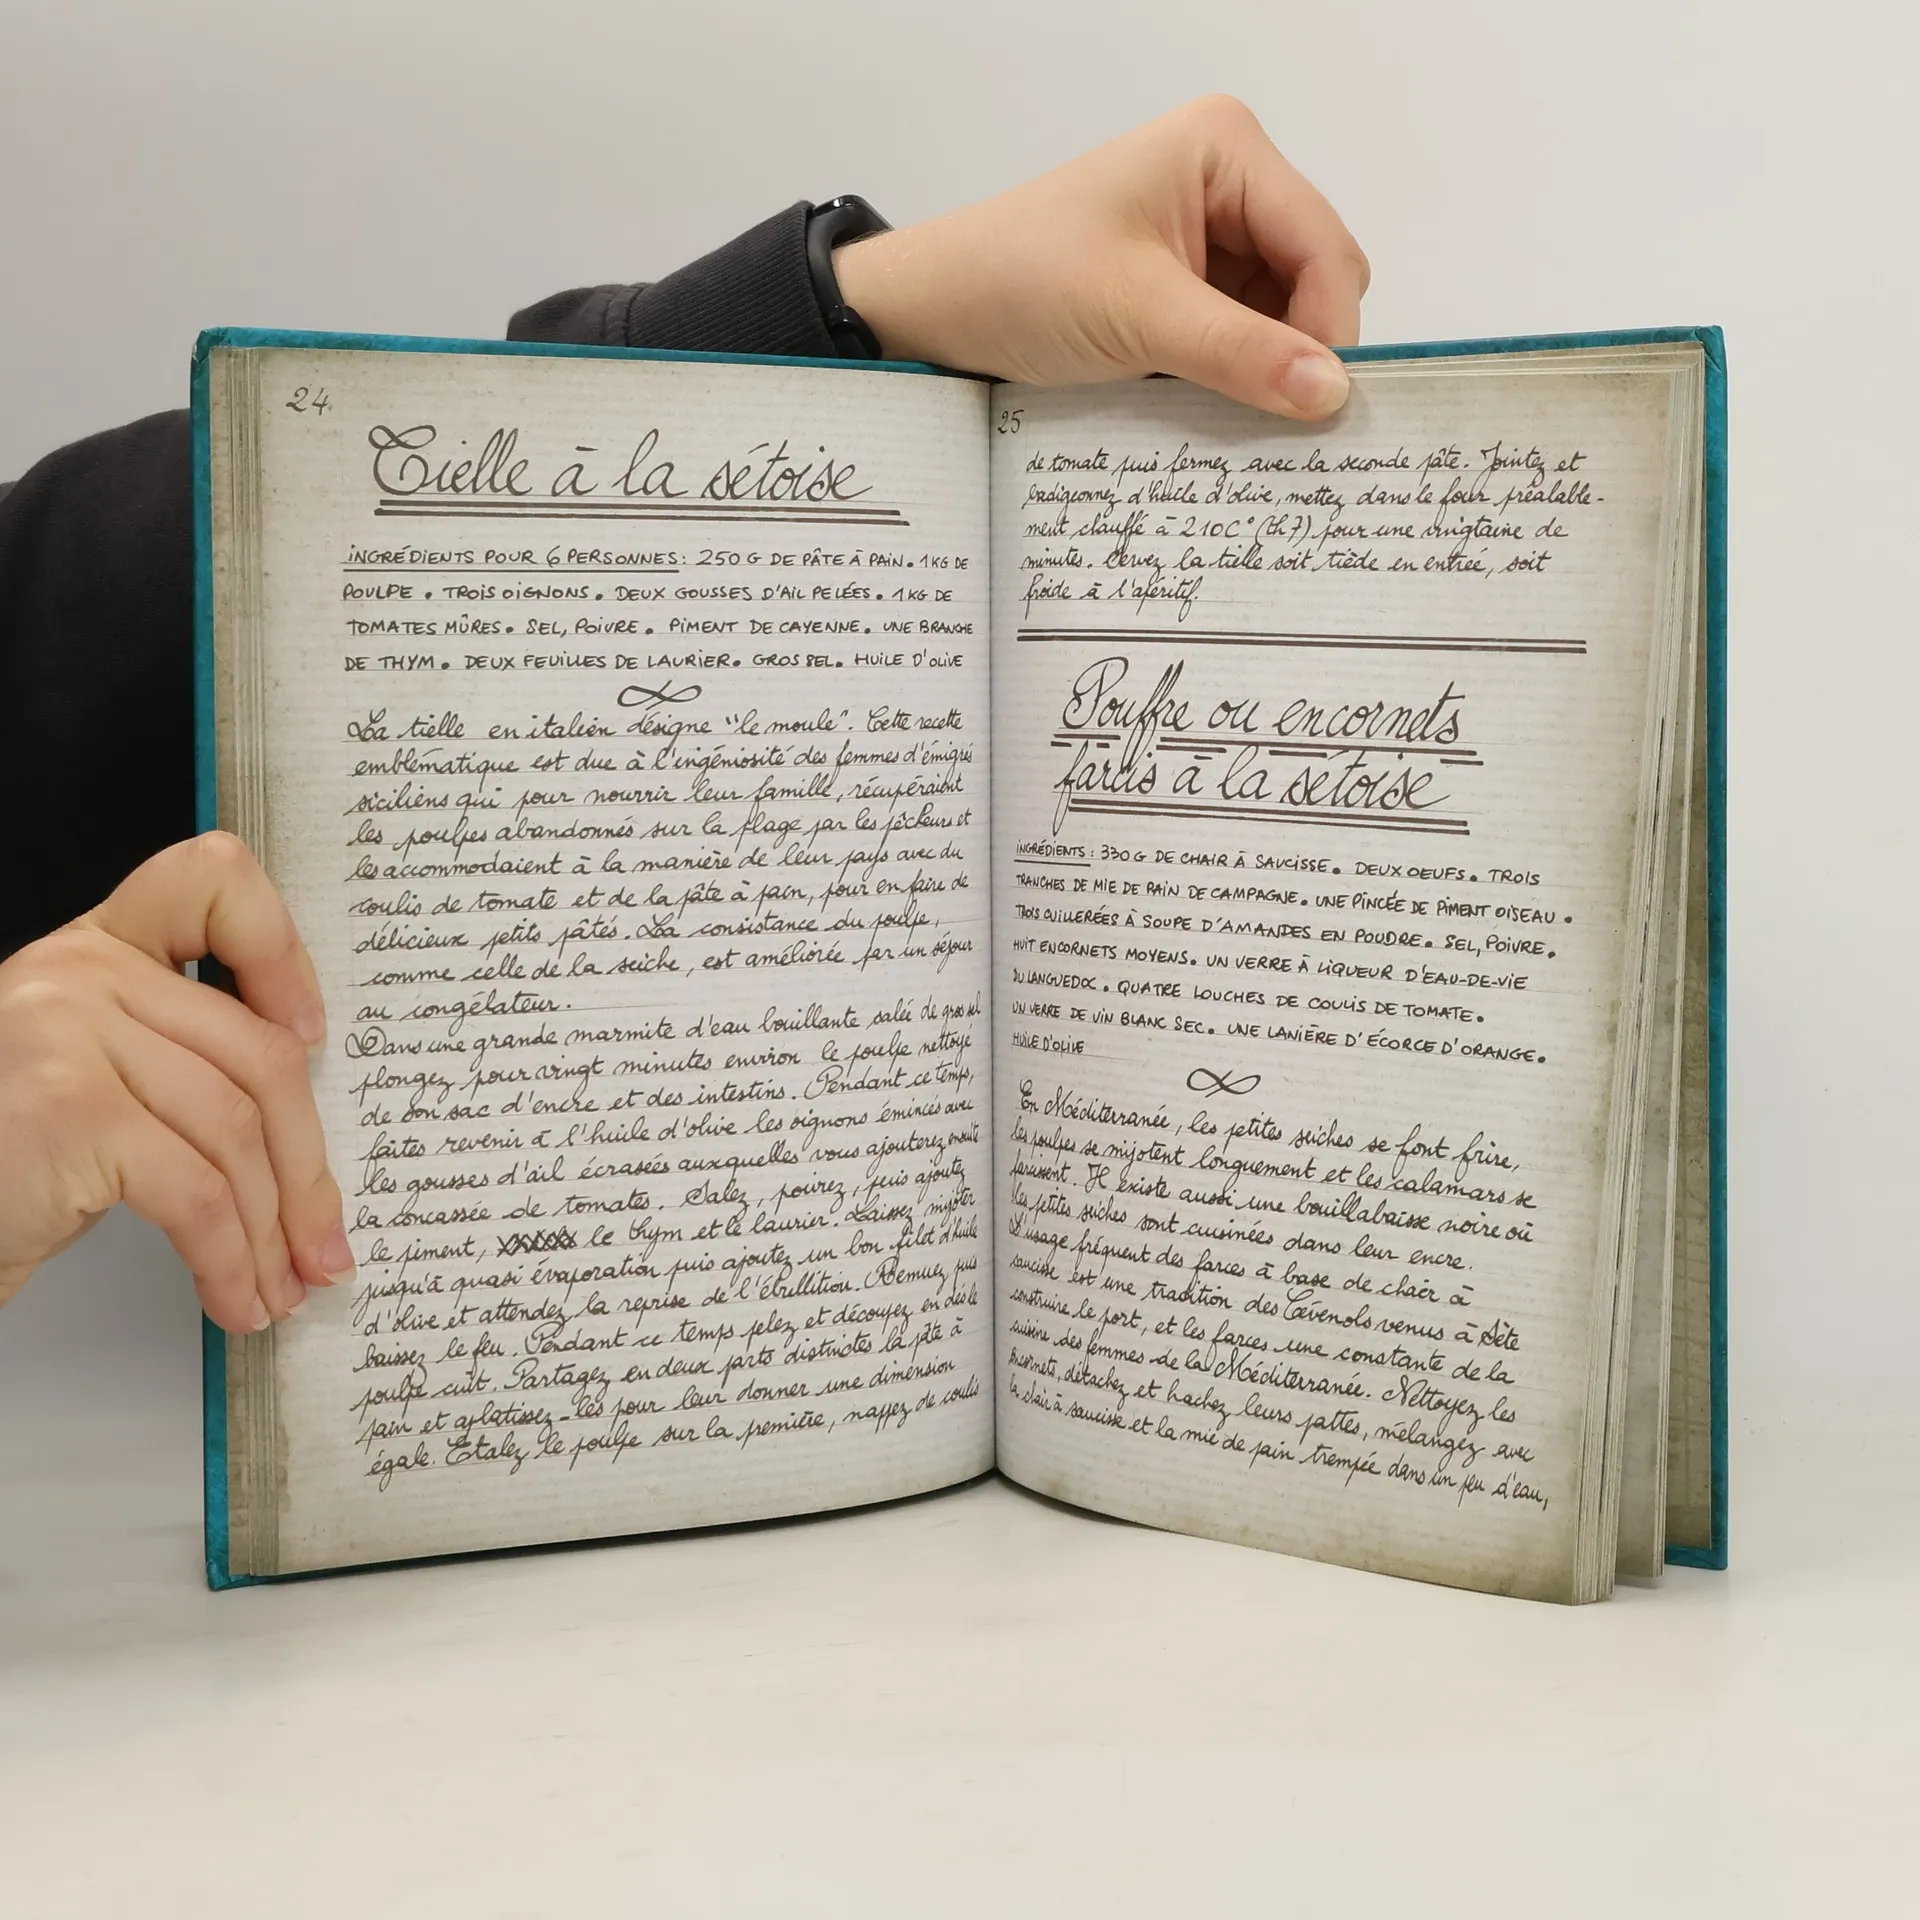 24.
Tielle à la sétoise
INGRÉDIENTS POUR 6 PERSONNES : 250 G DE PÂTE À PAIN. 1 KG DE
POULPE. TROIS OIGNONS. DEUX GOUSSES D'AIL PELÉES. 1 KG DE
TOMATES MÛRES. SEL, POIVRE. PIMENT DE CAYENNE. UNE BRANCHE
DE THYM. DEUX FEUILLES DE LAURIER. GROS SEL. HUILE D'OLIVE
La tielle en italien désigne "le moule". Cette recette
emblématique est due à l'ingéniosité des femmes d'émigrés
siciliens qui pour nourrir leur famille, récupéraient
les poulpes abandonnés sur la plage par les pêcheurs et
les accommodaient à la manière de leur pays avec du
coulis de tomate et de la pâte à pain, pour en faire de
délicieux petits pâtés. La consistance du poulpe,
comme celle de la seiche, est améliorée par un séjour
au congélateur.
Dans une grande marmite d'eau bouillante salée de gros sel
plongez pour vingt minutes environ le poulpe nettoyé
de son sac d'encre et des intestins. Pendant ce temps,
faites revenir à l'huile d'olive les oignons émincés avec
les gousses d'ail écrasées auxquelles vous ajouterez ensuite
la concassée de tomates. Salez, poivrez, puis ajoutez
le piment, le thym et le laurier. Laissez mijoter
jusqu'à quasi évaporation puis ajoutez un bon filet d'huile
d'olive et attendez la reprise de l'ébullition. Remuez puis
baissez le feu. Pendant ce temps pelez et découpez en dés le
poulpe cuit. Partagez en deux parts distinctes la pâte à
pain et aplatissez-les pour leur donner une dimension
égale. Etalez le poulpe sur la première, nappez de coulis
25
de tomate puis fermez avec la seconde pâte. Jointez et
badigeonnez d'huile d'olive, mettez dans le four préalable-
ment chauffé à 210C° (th 7) pour une vingtaine de
minutes. Servez la tielle soit tiède en entrée, soit
froide à l'apéritif.
Pouffre ou encornets
farcis à la sétoise
INGRÉDIENTS : 330 G DE CHAIR À SAUCISSE. DEUX OEUFS. TROIS
TRANCHES DE MIE DE PAIN DE CAMPAGNE. UNE PINCÉE DE PIMENT OISEAU.
TROIS CUILLERÉES À SOUPE D'AMANDES EN POUDRE. SEL, POIVRE.
HUIT ENCORNETS MOYENS. UN VERRE À LIQUEUR D'EAU-DE-VIE
DU LANGUEDOC. QUATRE LOUCHES DE COULIS DE TOMATE.
UN VERRE DE VIN BLANC SEC. UNE LANIÈRE D'ÉCORCE D'ORANGE.
HUILE D'OLIVE
En Méditerranée, les petites seiches se font frire,
les poulpes se mijotent longuement et les calamars se
farcissent. Il existe aussi une bouillabaisse noire où
les petites seiches sont cuisinées dans leur encre.
L'usage fréquent des farces à base de chair à
saucisse est une tradition des Cévenols venus à Sète
construire le port, et les farces une constante de la
cuisine des femmes de la Méditerranée. Nettoyez les
encornets, détachez et hachez leurs pattes, mélangez avec
la chair à saucisse et la mie de pain trempée dans un peu d'eau,